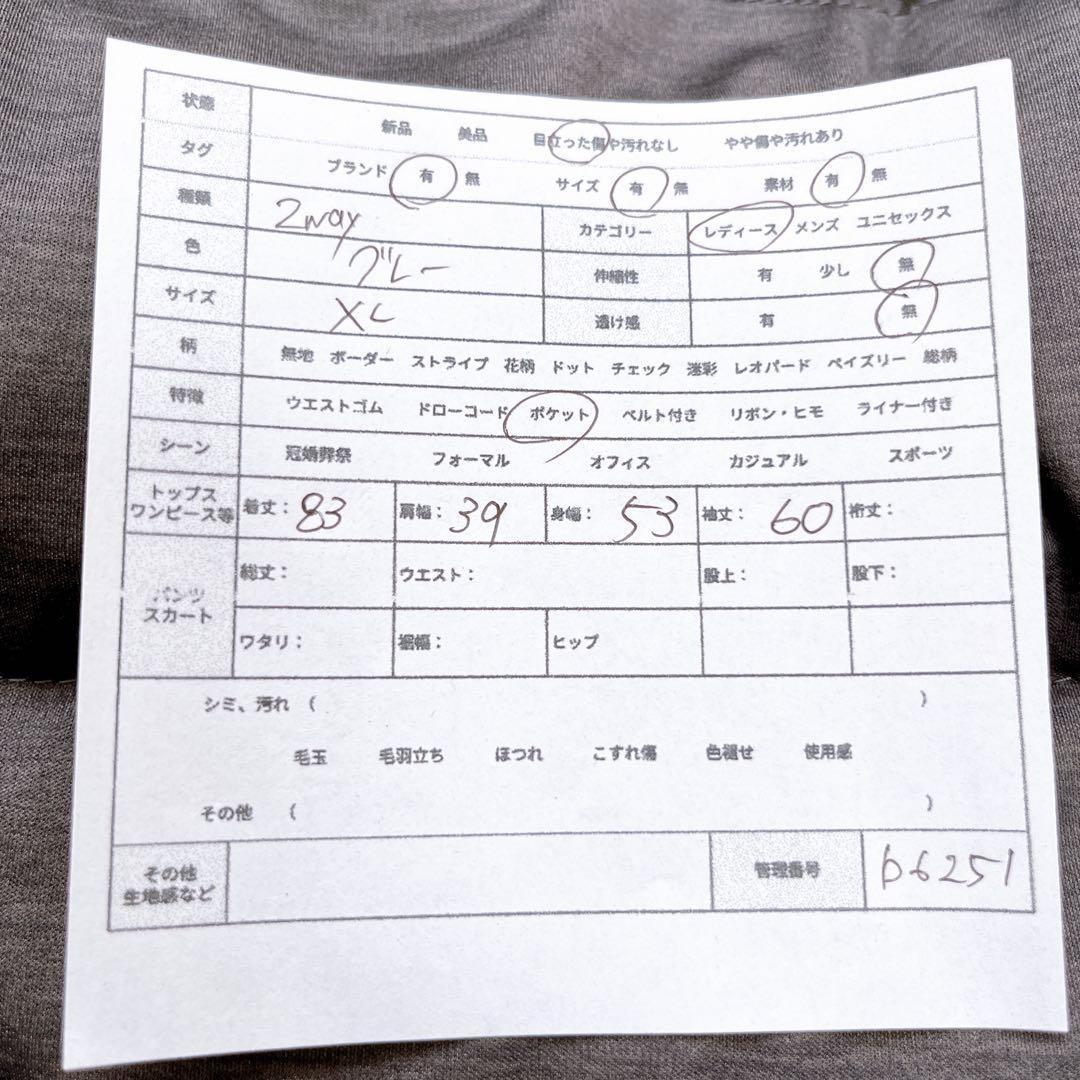 状態 新品 美品 目立った傷や汚れなし やや傷や汚れあり
タグ ブランド 有 無 サイズ 有 無 素材 有 無
種類 2way カテゴリー レディース メンズ ユニセックス
色 グレー 伸縮性 有 少し 無
サイズ XL 透け感 有 無
柄 無地 ボーダー ストライプ 花柄 ドット チェック 迷彩 レオパード ペイズリー 総柄
特徴 ウエストゴム ドローコード ポケット ベルト付き リボン・ヒモ ライナー付き
シーン 冠婚葬祭 フォーマル オフィス カジュアル スポーツ
トップス
ワンピース等 着丈: 83 肩幅: 39 身幅: 53 袖丈: 60 裄丈:
パンツ
スカート
総丈: ウエスト: 股上: 股下:
ワタリ: 裾幅: ヒップ
シミ、汚れ ( )
毛玉 毛羽立ち ほつれ こすれ傷 色褪せ 使用感
その他 ( )
その他
生地感など 管理番号 b6251